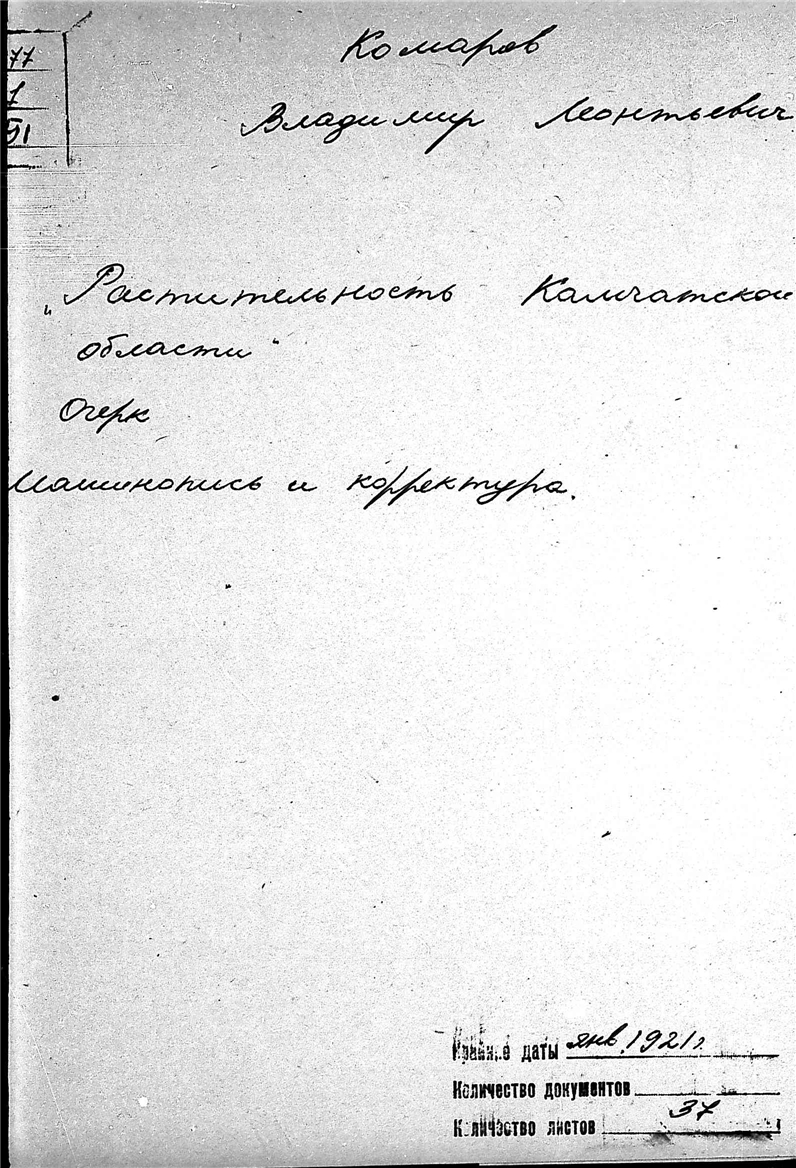 77
1
91
Комаров
Владимир Леонтьевич
„Растительность Камчатской
области“
Очерк
Машинопись и корректура.
Крайние даты янв. 1921 г.
Количество документов
Количество листов 37